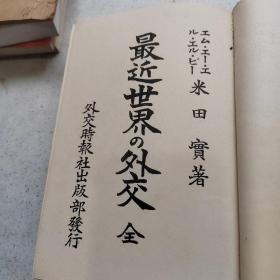 エム・エー・エ
ル・エル・ビー
米田實著
最近世界の外交 全
外交時報社出版部發行